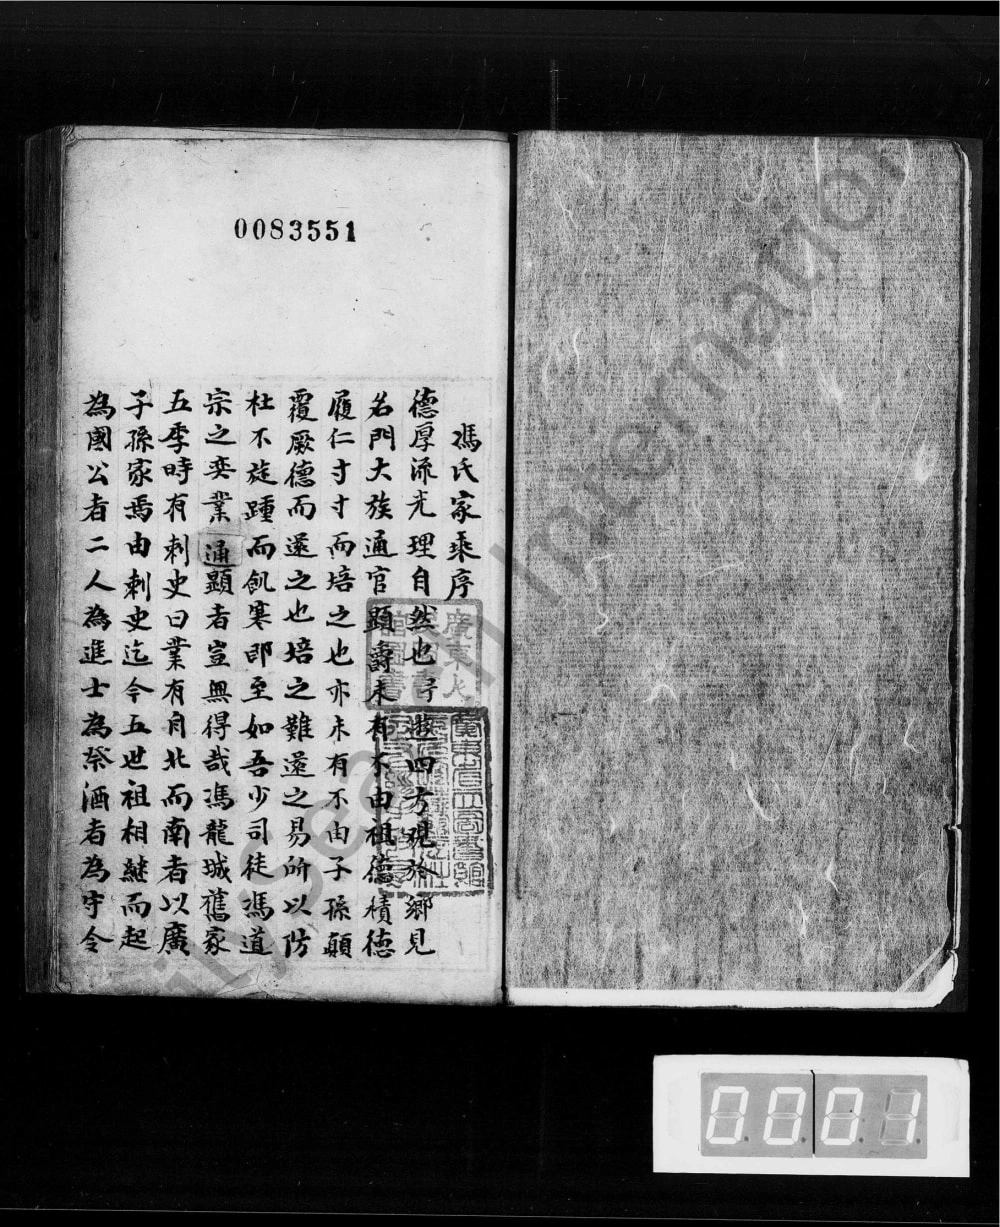 0083551
馮氏家乘序
德厚流光理自然也予遊四方觀於鄉見
名門大族通官顯爵未有不由祖德積德
履仁寸寸而培之也亦未有不由子孫顛
覆厥德而遽之也培之難遽之易所以防
杜不旋踵而飢寒即至如吾少司徒馮道
宗之奕業通顯者豈無得哉馮龍城舊家
五季時有刺史曰業有自北而南者以廣
子孫家焉由刺史迄今五世祖相繼而起
為國公者二人為進士為祭酒者為守令
0001